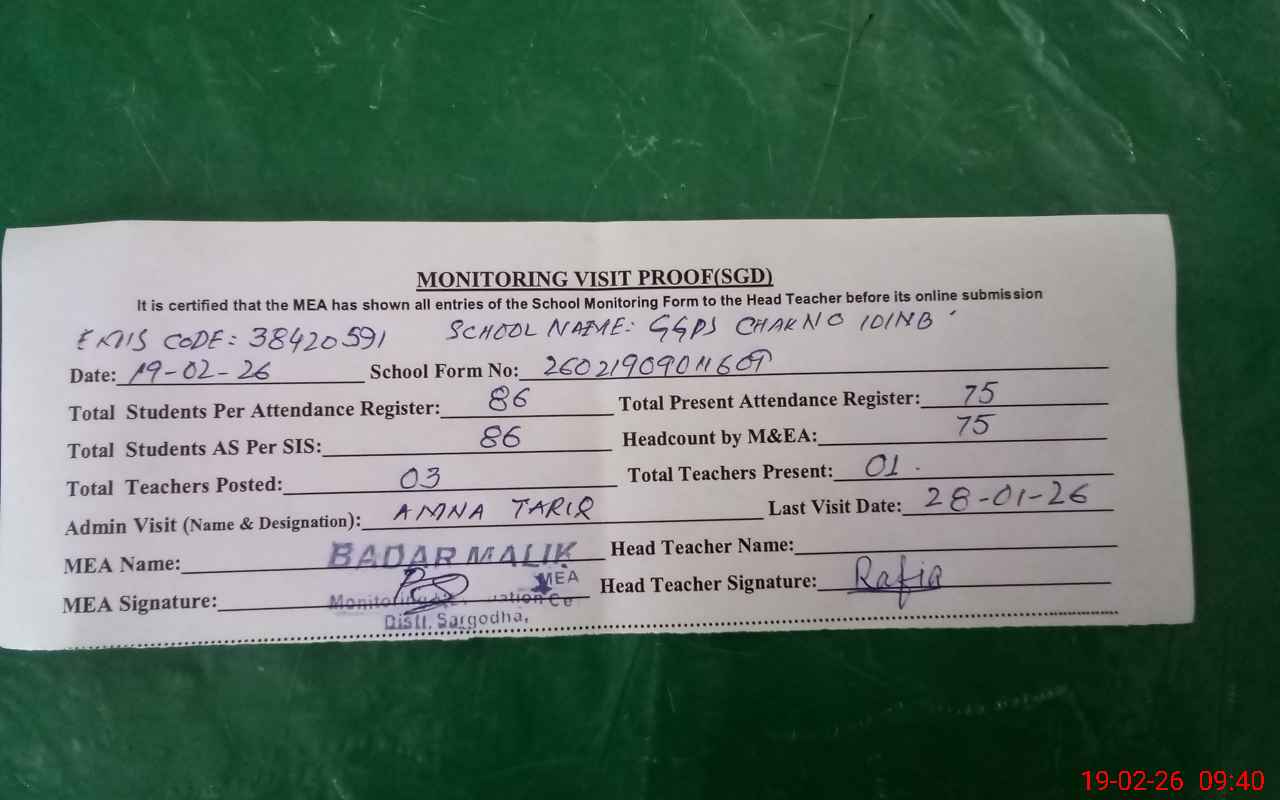 MONITORING VISIT PROOF(SGD)
It is certified that the MEA has shown all entries of the School Monitoring Form to the Head Teacher before its online submission
EMIS CODE: 38420591 SCHOOL NAME: GGPS CHAK NO 10/NB
Date: 19-02-26 School Form No:
Total Students Per Attendance Register: 86 Total Present Attendance Register: 75
Total Students AS Per SIS: 86 Headcount by M&EA: 75
Total Teachers Posted: 03 Total Teachers Present: 01
Admin Visit (Name & Designation): AMNA TARIQ Last Visit Date: 28-01-26
MEA Name: BADAR MALIK Head Teacher Name:
MEA Signature: MEA Head Teacher Signature: Rafia
Distt. Sargodha,
19-02-26 09:40